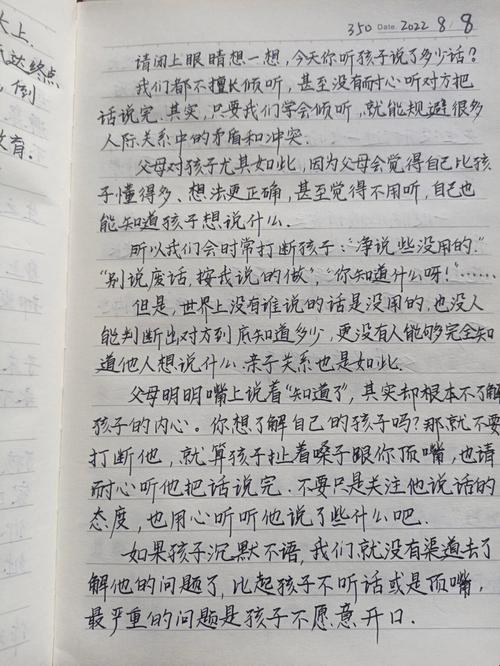 头上.
达终点
,倒
教育.
350 Date. 2022 8/8
请闭上眼睛想一想,今天你听孩子说了多少话?
我们都不擅长倾听,甚至没有耐心听对方把
话说完.其实,只要我们学会倾听,就能规避很多
人际关系中的矛盾和冲突.
父母对孩子尤其如此,因为父母会觉得自己比孩
子懂得多、想法更正确,甚至觉得不用听,自己也
能知道孩子想说什么.
所以我们会时常打断孩子:“净说些没用的.”
“别说废话,按我说的做”,“你知道什么呀!”……
但是,世界上没有谁说的话是没用的,也没人
能判断出对方到底知道多少,更没有人能够完全知
道他人想说什么.亲子关系也是如此.
父母明明嘴上说着“知道了”,其实却根本不了解
孩子的内心。你想了解自己的孩子吗?那就不要
打断他,就算孩子扯着嗓子跟你顶嘴,也请
耐心听他把话说完.不要只是关注他说话的
态度,也用心听听他说了些什么吧.
如果孩子沉默不语,我们就没有渠道去了
解他的问题了,比起孩子不听话或是顶嘴,
最严重的问题是孩子不愿意开口.